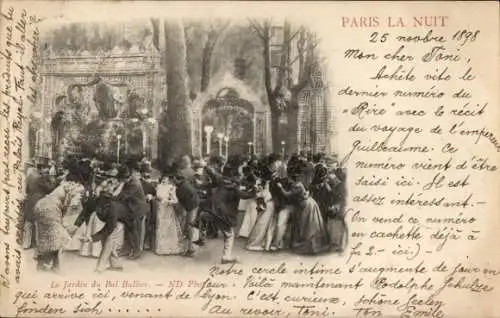 PARIS LA NUIT
25 novembre 1898
Mon cher Toni.
Achète vite le
dernier numéro du
"Rire" avec le récit
du voyage de l'empereur
Guilleaume. Ce
numéro vient d'être
saisi ici. Il est
assez interessant.
(On vend ce numéro
en cachette déjà à
fr 2.- ici)
Le Jardin du Bal Bullier. — ND Phot
Notre cercle intime s'augmente de jour en
jour. Voilà maintenant Rodolphe Schulze
qui arrive ici, venant de Lyon. C'est curieux, schöne Seelen
finden sich. Au revoir, Toni. Ton Emile
N'avais-tu pas reçu